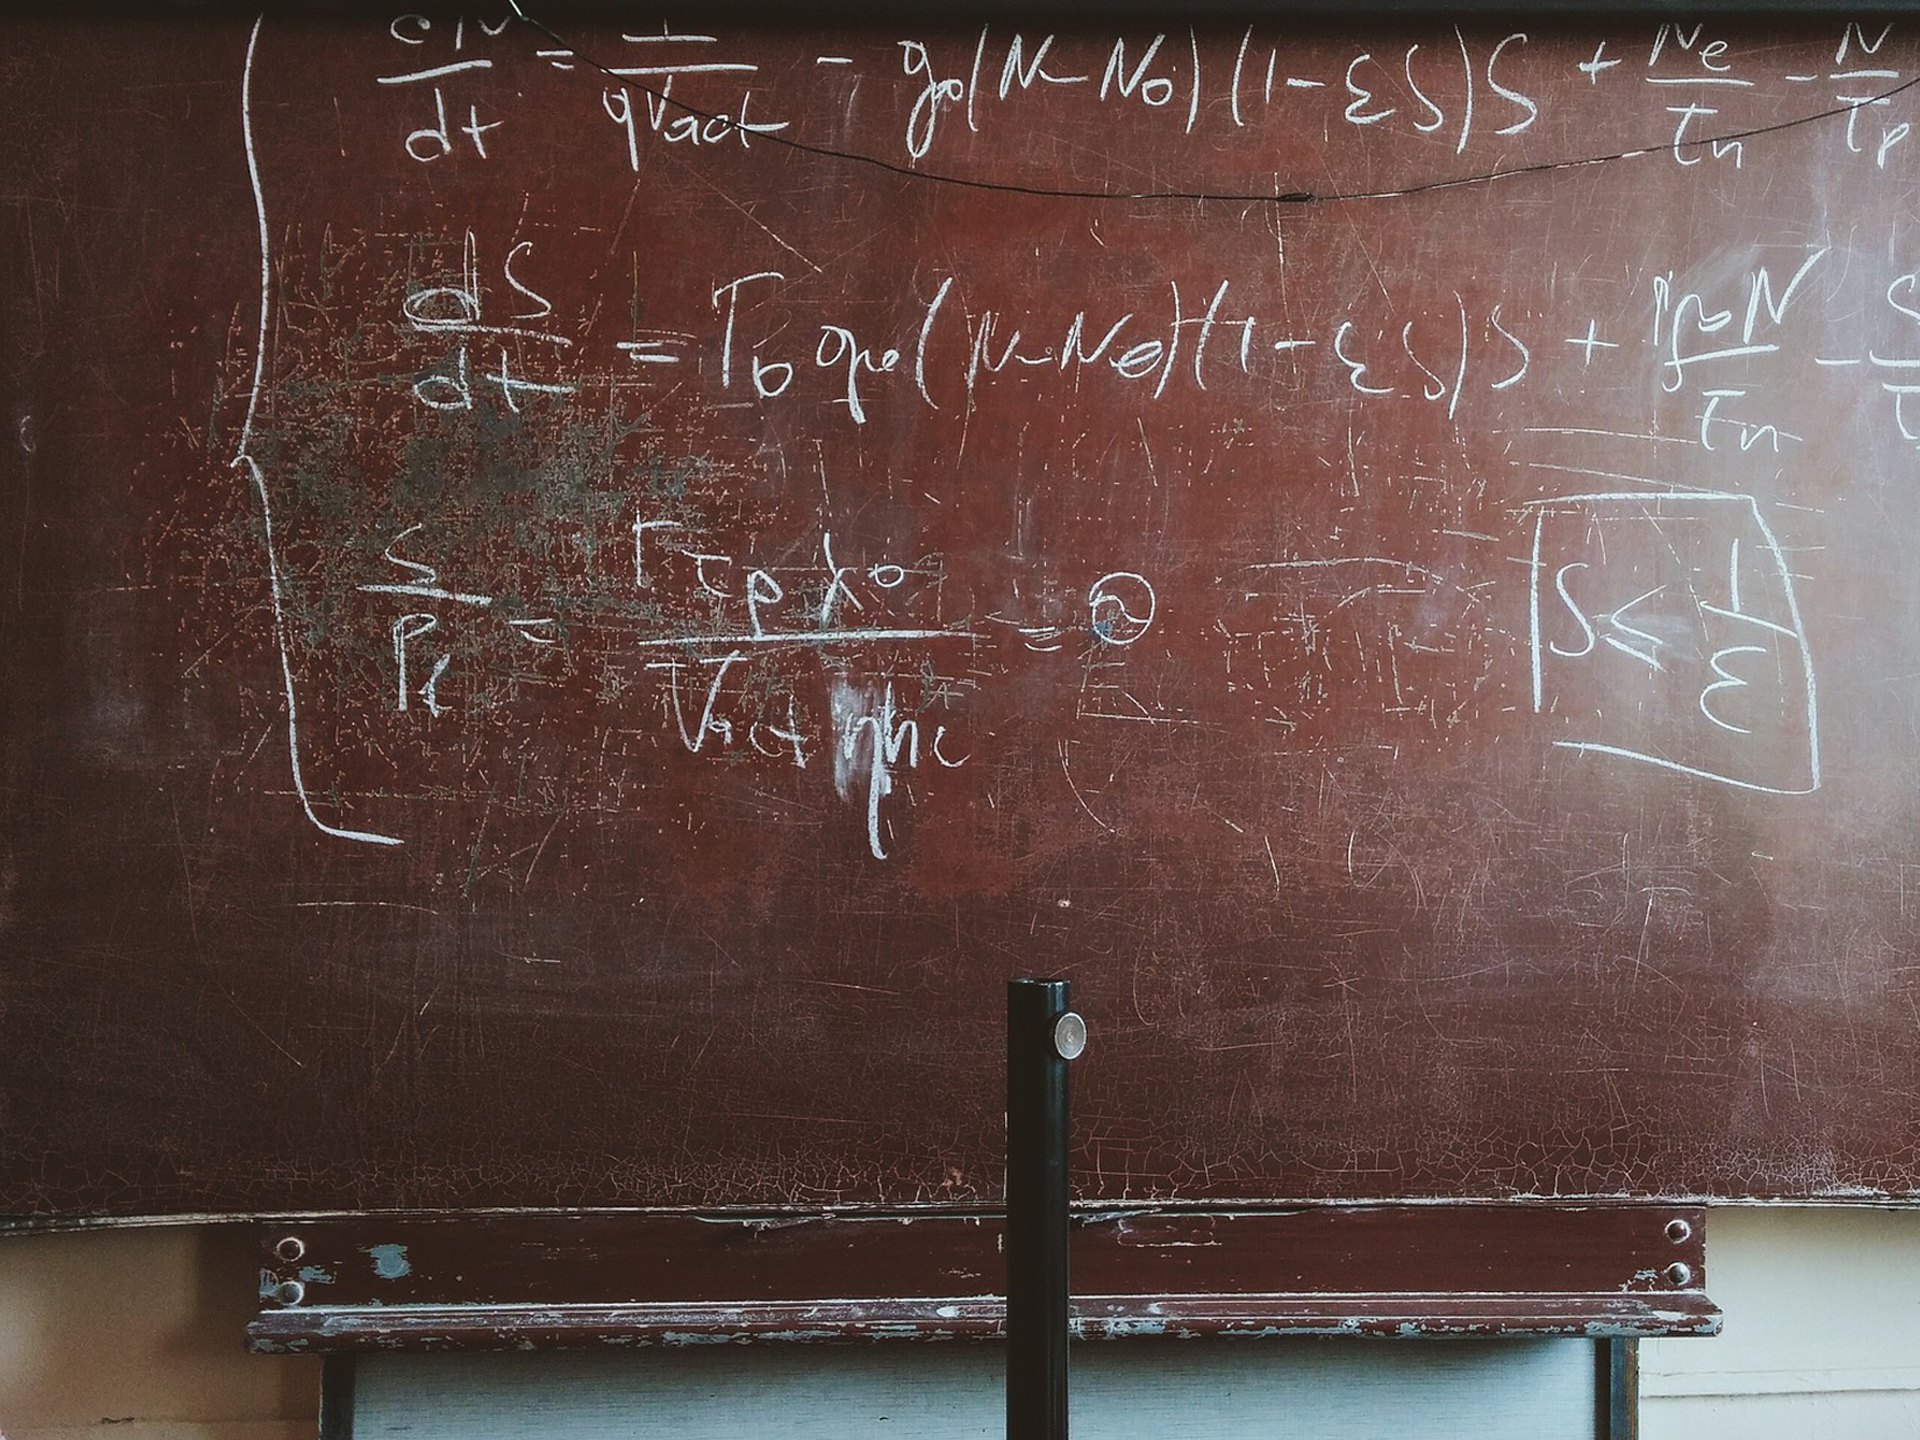 dN/dt = I/qVact - g₀(N - N₀)(1 - εS)S + Ne/τn - N/τp
dS/dt = Γ₀g₀(N - N₀)(1 - εS)S + N/τn - S/τ
S/Pf = Γτpλ₀/Vactηhc = ϑ
S ≤ 1/ε